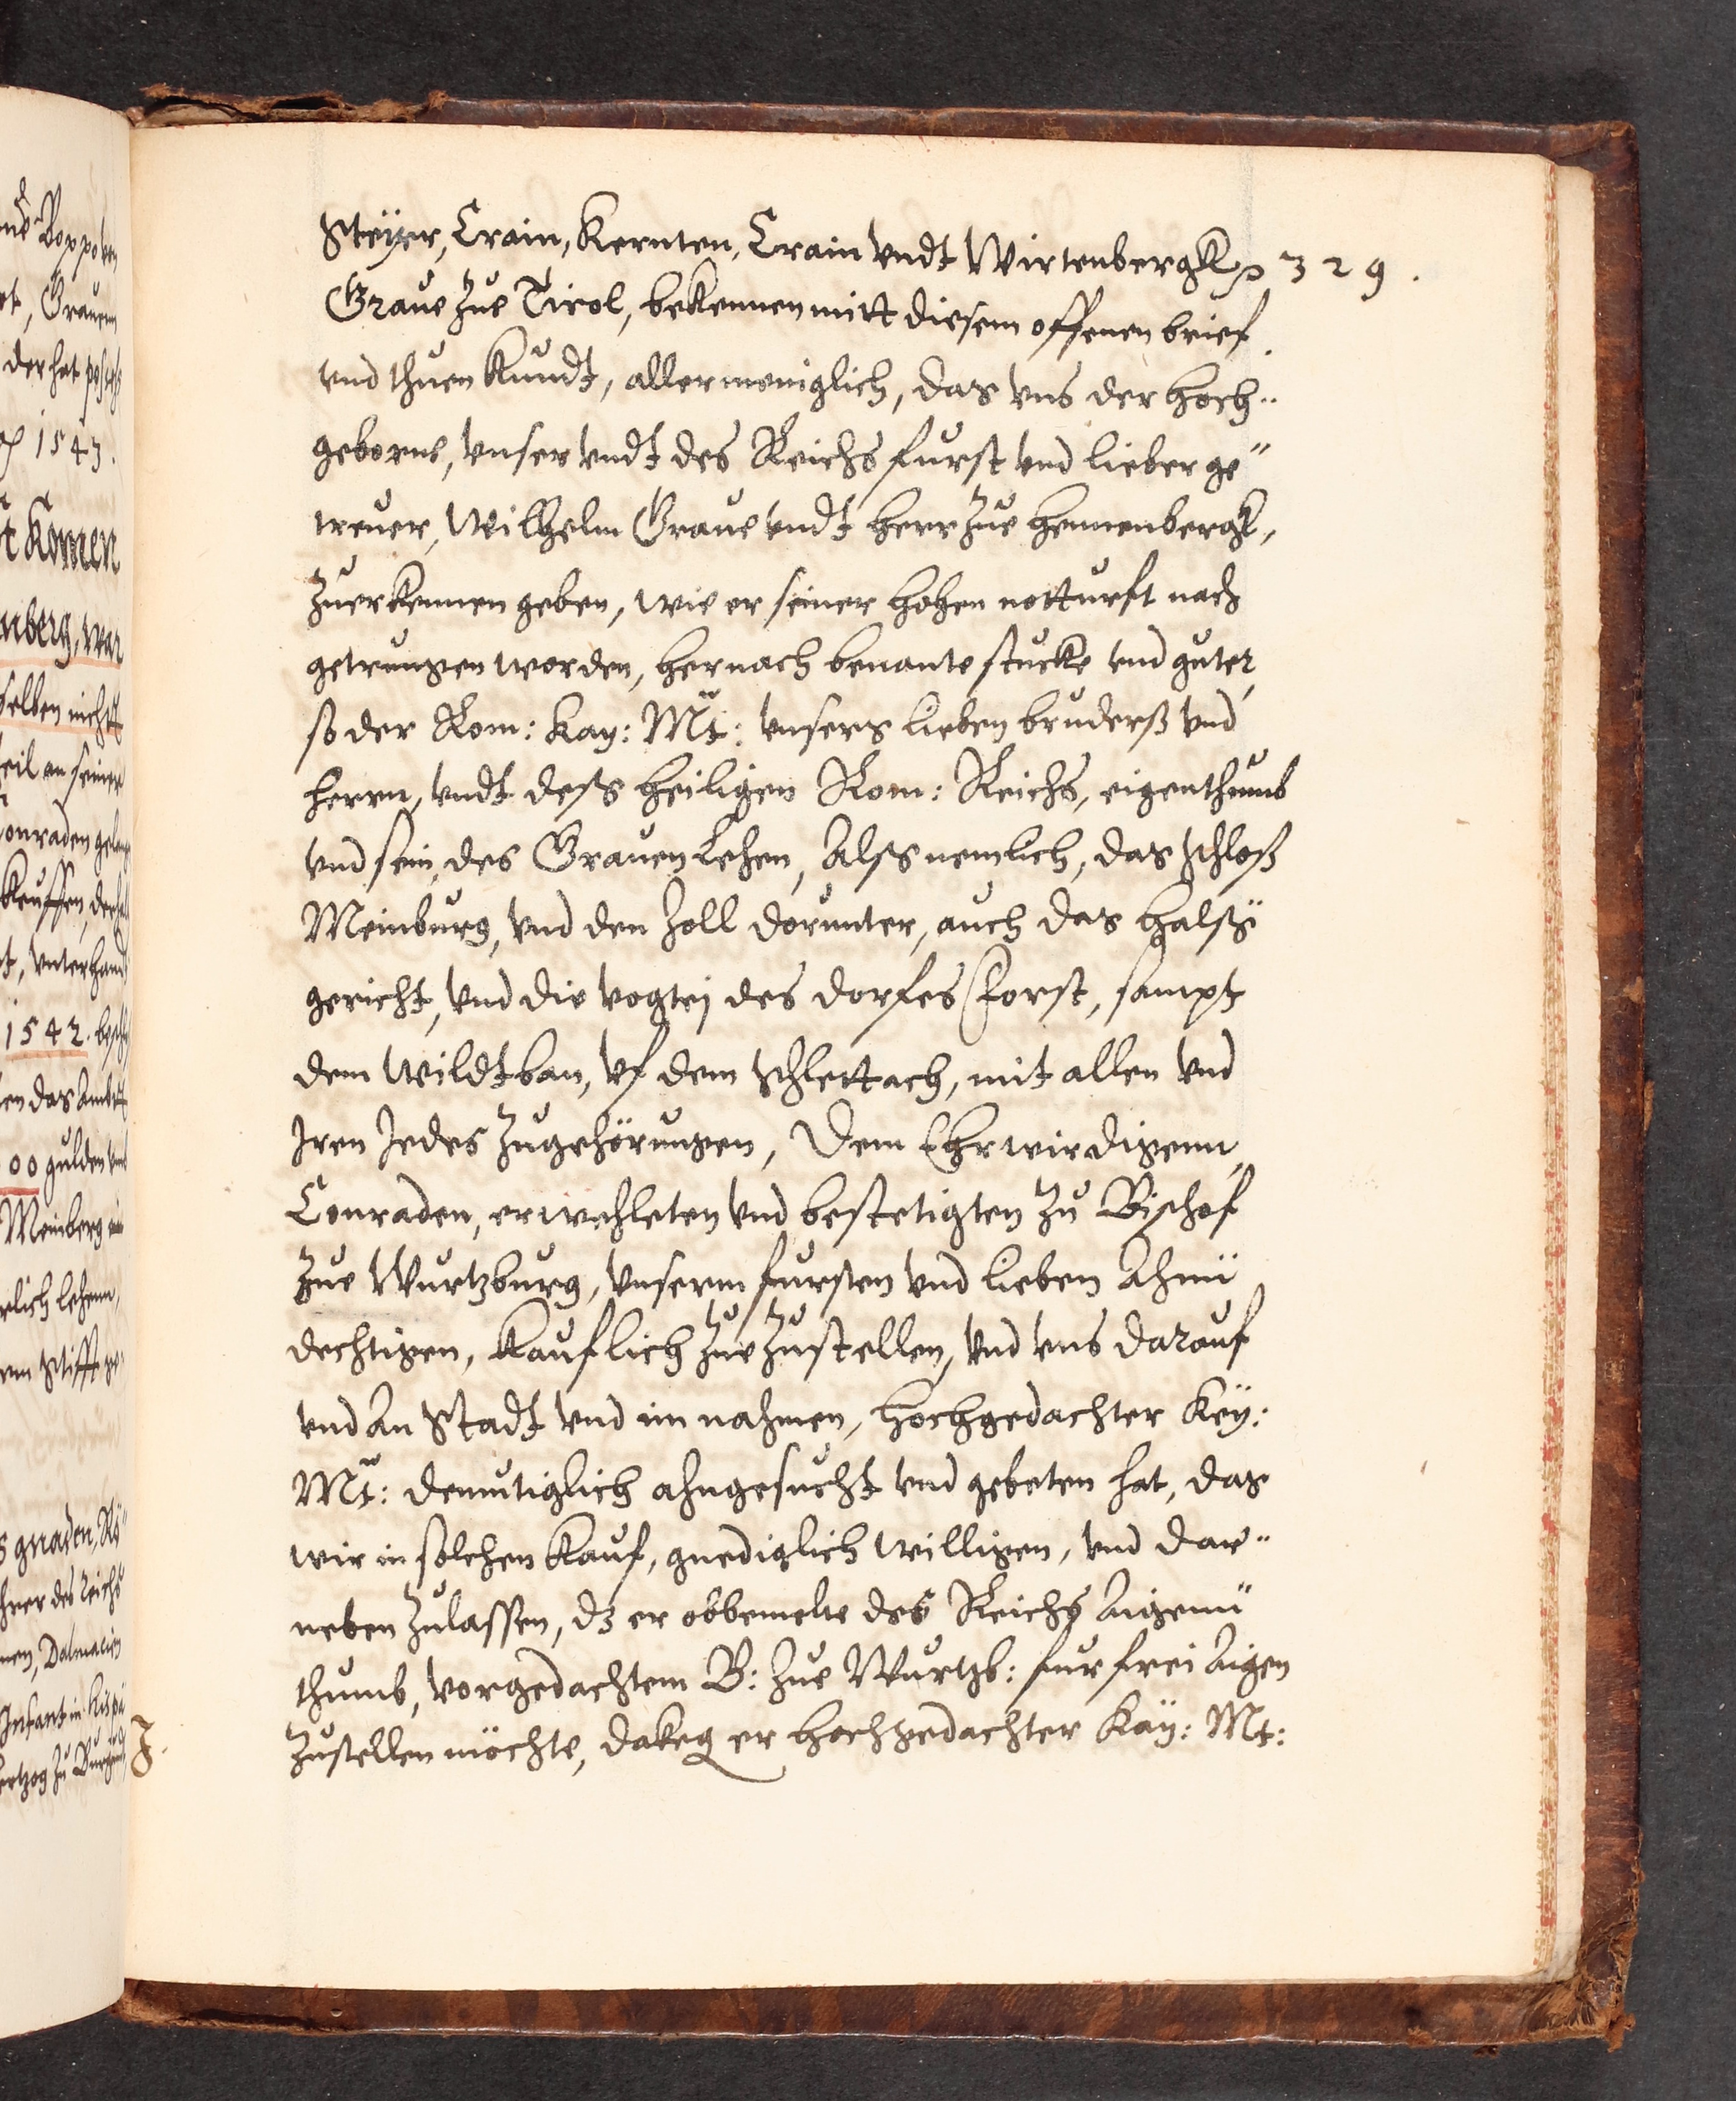 329.
Steÿer, Crain, Kernten, Crain vndt Wirtenbergk
Graue zue Tirol, bekennen mitt diesem offenen brief
vnd thuen kundt, allermeniglich, das vns der hoch-
geborne, vnser vndt des Reichs furst vnd lieber ge-
treuer, Wilhelm Graue vndt herr zue hennenbergk,
zuerkennen geben, wie er seiner hohen notturft nach
getrungen worden, hernach benante stucke vnd guter,
so der Rom: Kay: Mt: vnsers lieben bruderß vnd
herrn, vndt deß heiligen Rom: Reichs, eigenthumb
vnd sein, des Grauen Lehen, Alß nemlich, das schloß
Meinburg, vnd den Zoll dorunter, auch das halß-
gericht, vnd die vogtej des dorfes Forst, sampt
dem Wildtban, vf dem Schlettach, mit allen vnd
Jren Jedes zugehörungen, Dem Ehrwirdigenn,
Conraden, erwehleten vnd bestetigten zu Bischof
zue Wurtzburg, vnserm fursten vnd lieben Ahn-
dechtigen, kauflich zue zustellen, vnd vns darauf
vnd An Stadt vnd im nahmen, hochgedachter Keÿ:
Mt: demutiglich ahngesucht vnd gebeten hat, das
wir in solchen Kauf, gnediglich willigen, vnd dar-
neben zulassen, dz er obbemelte des Reichs Aigen-
thumb, vorgedachtem B: zue Wurtzb: fur frei Aigen
zustellen möchte, dakeg er hochgedachter Kaÿ: Mt: